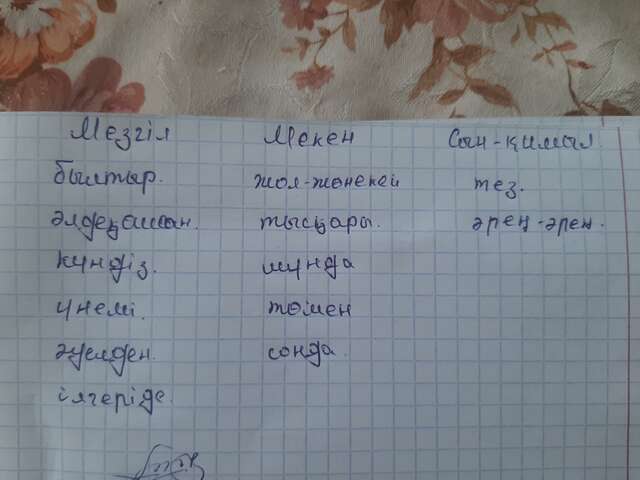 Мезгіл Мекен Сын-қимыл
былтыр. жол-жөнекей тез.
әлдеқашан. тысқары. әрең-әрең.
күндіз. мұнда
үнемі. төмен
әуелден. сонда.
ілгеріде.